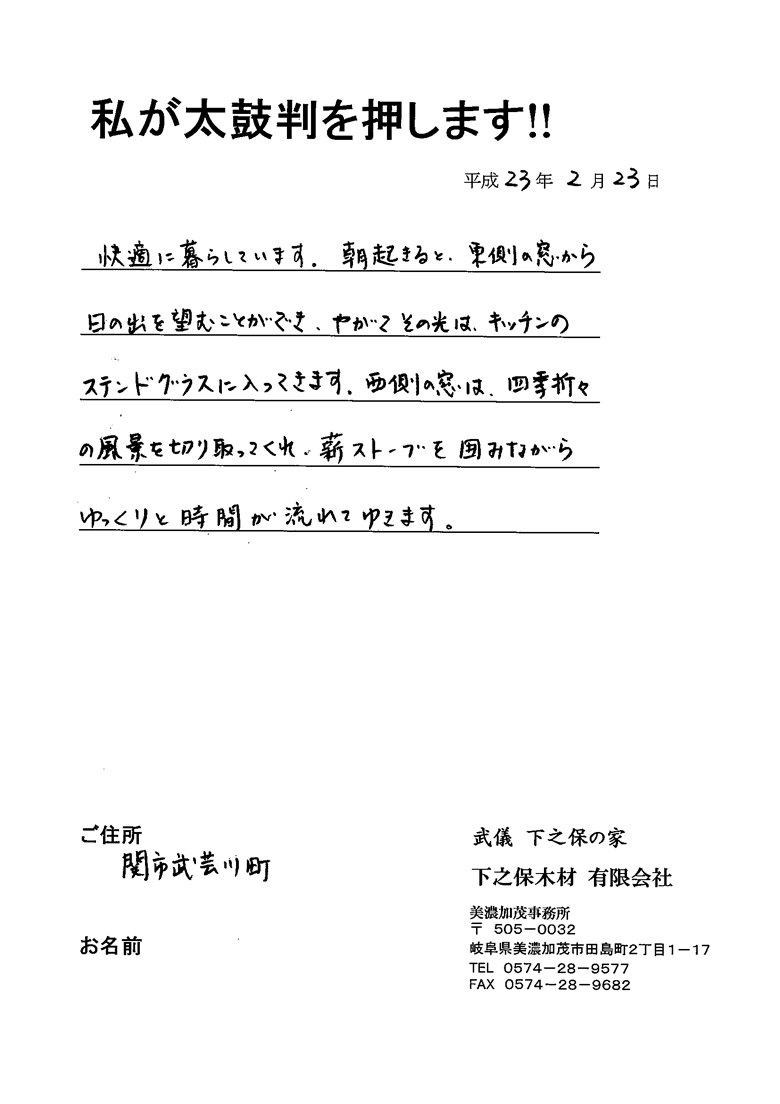 私が太鼓判を押します!!
平成 23 年 2 月 23 日
快適に暮らしています。朝起きると、東側の窓から
日の出を望むことができ、やがてその光は、キッチンの
ステンドグラスに入ってきます。西側の窓は、四季折々
の風景を切り取ってくれ、薪ストーブを囲みながら
ゆっくりと時間が流れてゆきます。
ご住所
関市武芸川町
お名前
武儀 下之保の家
下之保木材 有限会社
美濃加茂事務所
〒 505-0032
岐阜県美濃加茂市田島町2丁目1-17
TEL 0574-28-9577
FAX 0574-28-9682